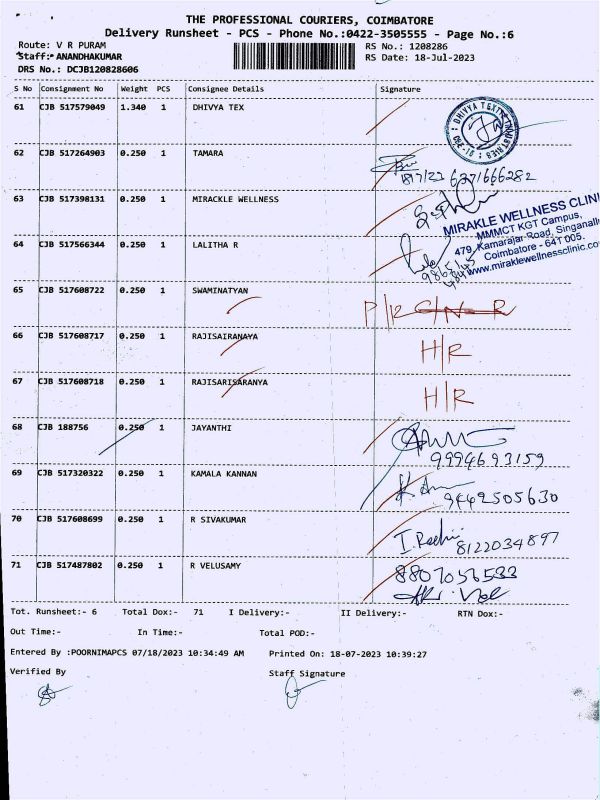 THE PROFESSIONAL COURIERS, COIMBATORE
Delivery Runsheet - PCS - Phone No.:0422-3505555 - Page No.:6
Route: V R PURAM
RS No.: 1208286
Staff: ANANDHAKUMAR
RS Date: 18-Jul-2023
DRS No.: DCJB120828606
S No Consignment No Weight PCS Consignee Details Signature
61 CJB 517579049 1.340 1 DHIVYA TEX
62 CJB 517264903 0.250 1 TAMARA
6371666282
63 CJB 517398131 0.250 1 MIRACKLE WELLNESS
MIRAKLE WELLNESS CLINI
MMMCT KGT Campus,
479, Kamarajar Road, Singanall
Coimbatore - 641 005.
www.miraklewellnessclinic.co
64 CJB 517566344 0.250 1 LALITHA R
65 CJB 517608722 0.250 1 SWAMINATYAN
66 CJB 517608717 0.250 1 RAJISAIRANAYA H/R
67 CJB 517608718 0.250 1 RAJISARISARANYA H/R
68 CJB 188756 0.250 1 JAYANTHI
9994693159
69 CJB 517320322 0.250 1 KAMALA KANNAN
9442505630
70 CJB 517608699 0.250 1 R SIVAKUMAR
8122034897
71 CJB 517487802 0.250 1 R VELUSAMY
8807056533
Tot. Runsheet:- 6 Total Dox:- 71 I Delivery:- II Delivery:- RTN Dox:-
Out Time:- In Time:- Total POD:-
Entered By :POORNIMAPCS 07/18/2023 10:34:49 AM Printed On: 18-07-2023 10:39:27
Verified By Staff Signature